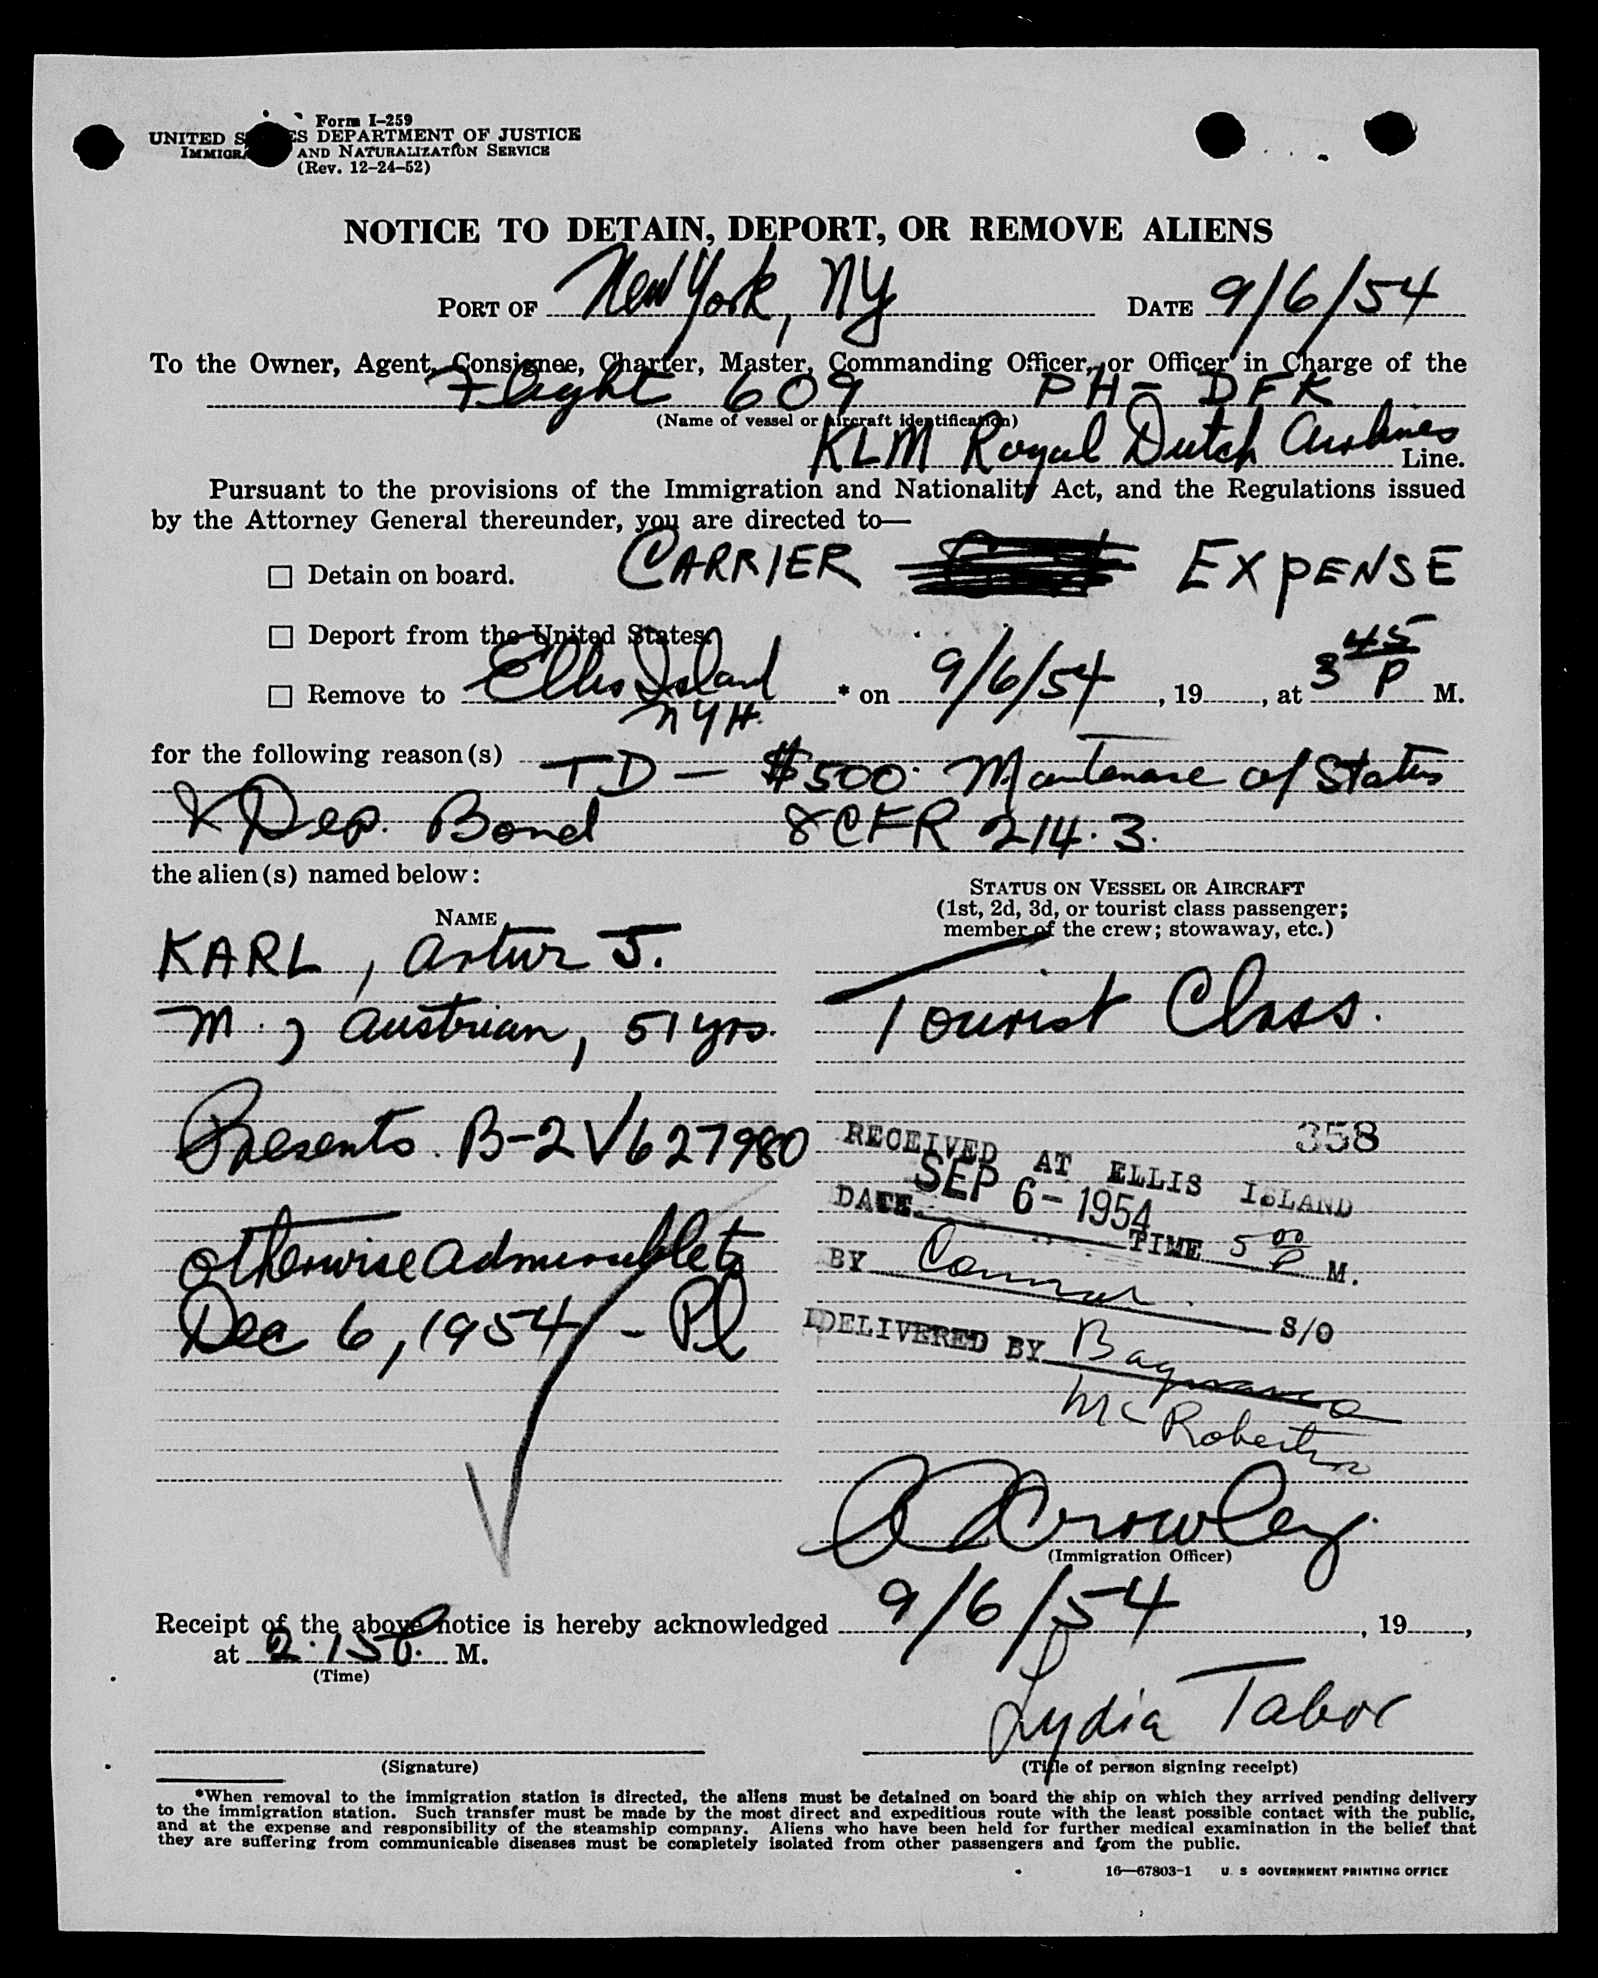 Form I-259
UNITED S ES DEPARTMENT OF JUSTICE
IMMIGRA AND NATURALIZATION SERVICE
(Rev. 12-24-52)
NOTICE TO DETAIN, DEPORT, OR REMOVE ALIENS
PORT OF New York, NY DATE 9/6/54
To the Owner, Agent, Consignee, Charter, Master, Commanding Officer, or Officer in Charge of the
Flight 609 PH-DFK
(Name of vessel or aircraft identification)
KLM Royal Dutch Airlines Line.
Pursuant to the provisions of the Immigration and Nationality Act, and the Regulations issued
by the Attorney General thereunder, you are directed to—
☐ Detain on board. CARRIER EXPENSE
☐ Deport from the United States.
☐ Remove to Ellis Island * on 9/6/54, 19, at 3 45 P M.
NYH.
for the following reason(s) TD — $500. Maintenance of Status
& Dep. Bond 8 CFR 214.3.
the alien(s) named below:
STATUS ON VESSEL OR AIRCRAFT
(1st, 2d, 3d, or tourist class passenger;
member of the crew; stowaway, etc.)
NAME
KARL, Artur J.
M., Austrian, 51 yrs. Tourist Class.
Presents B-2 V627980
358
RECEIVED AT ELLIS ISLAND
DATE SEP 6-1954 TIME 5 00 P M.
otherwise admissible to
BY S/O
Dec 6, 1954 - Pl
DELIVERED BY
McRoberts
A Crowley
(Immigration Officer)
Receipt of the above notice is hereby acknowledged 9/6/54, 19,
at 2:15 P. M.
(Time)
Lydia Tabor
(Signature) (Title of person signing receipt)
*When removal to the immigration station is directed, the aliens must be detained on board the ship on which they arrived pending delivery
to the immigration station. Such transfer must be made by the most direct and expeditious route with the least possible contact with the public,
and at the expense and responsibility of the steamship company. Aliens who have been held for further medical examination in the belief that
they are suffering from communicable diseases must be completely isolated from other passengers and from the public.
16—67803-1 U. S. GOVERNMENT PRINTING OFFICE